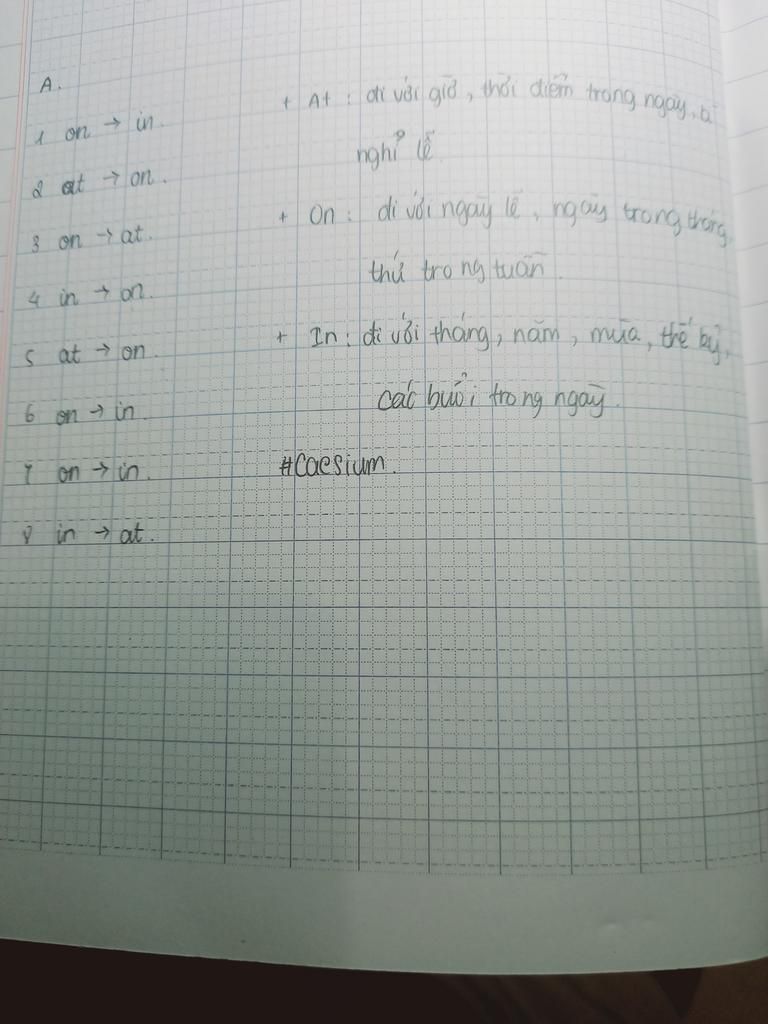 A.
1 on → in.
2 at → on.
3 on → at.
4 in → on.
5 at → on.
6 on → in.
7 on → in.
8 in → at.
+ At : đi với giờ, thời điểm trong ngày,
nghỉ lễ
+ On : đi với ngày lễ, ngày trong tháng,
thứ trong tuần.
+ In : đi với tháng, năm, mùa, thế kỷ,
các buổi trong ngày.
#Caesium.